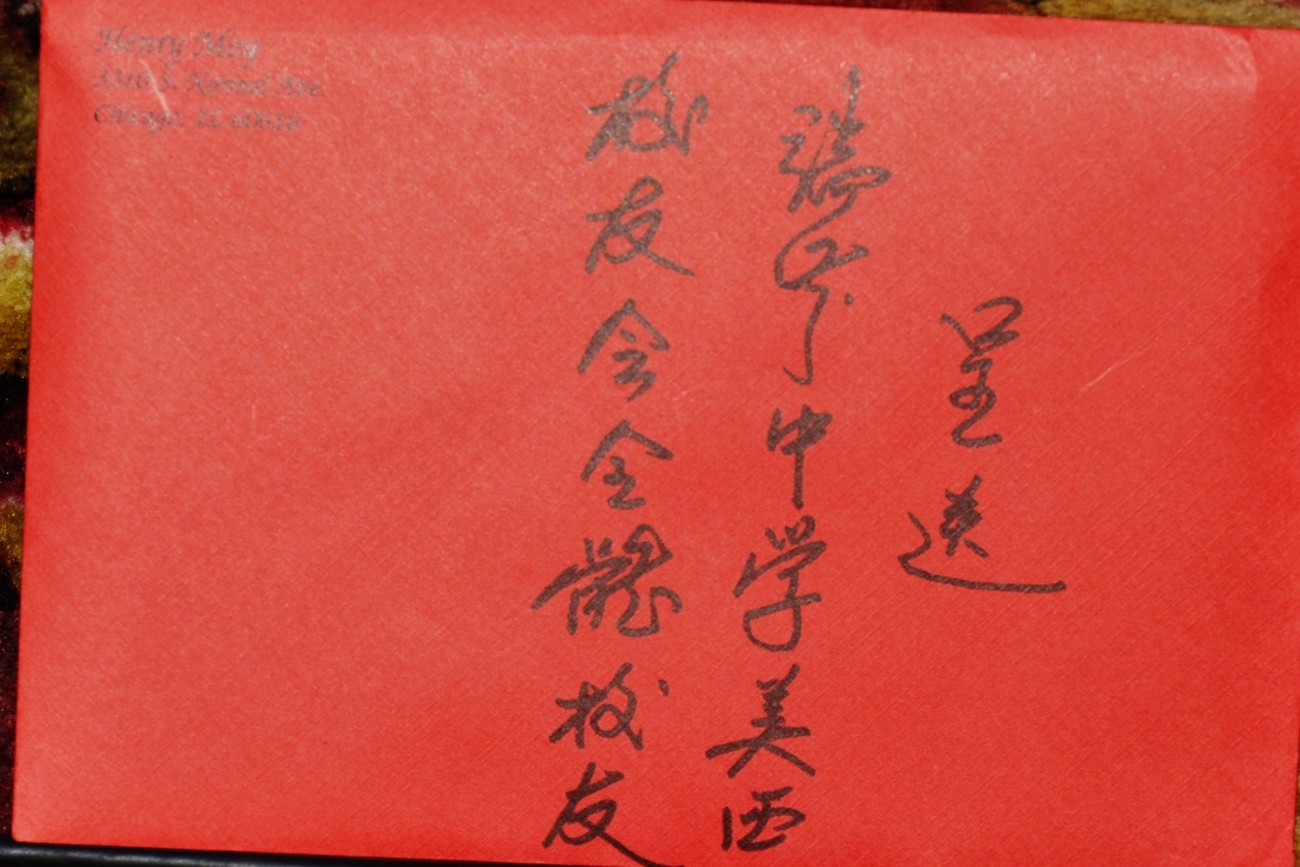 Henry Moy
3310 S. Normal Ave.
Chicago, IL 60616
呈送
端芬中学美西
校友会全體校友